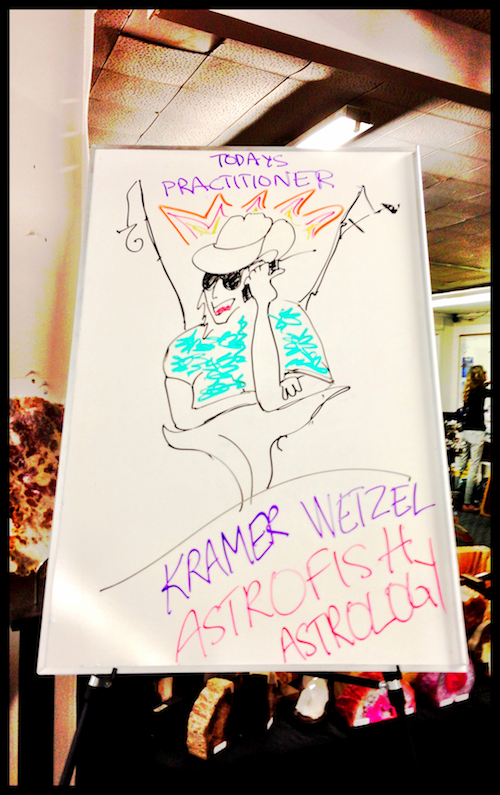 TODAYS
PRACTITIONER
KRAMER WETZEL
ASTROFISH
ASTROLOGY